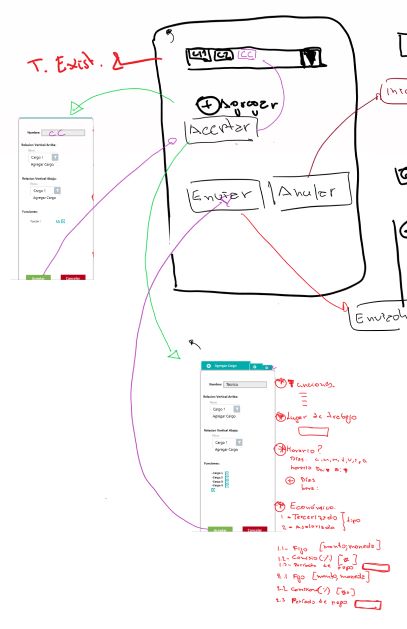 C1 C2 CC
T. Exist.
Agregar
Aceptar
Enviar
Anular
Inic
Enviado
Nombre: CC
Relacion Vertical Arriba:
Cargo 1
Agregar Cargo
Relacion Vertical Abajo:
Cargo 1
Agregar Cargo
Funciones:
Cancelar
Agregar Cargo
Nombre: Tecnico
Relacion Vertical Arriba:
Cargo 1
Agregar Cargo
Relacion Vertical Abajo:
Cargo 1
Agregar Cargo
Funciones:
Aceptar
Cancelar
Lugar de trabajo
Horario?
Dias
Dias
hora:
Económico
1.- Tercerizado
2.- Asalariado
tipo
1.1- Fijo [monto, moneda]
1.3- Periodo de pago
2.1 Fijo [monto, moneda]
2.3 Periodo de pago